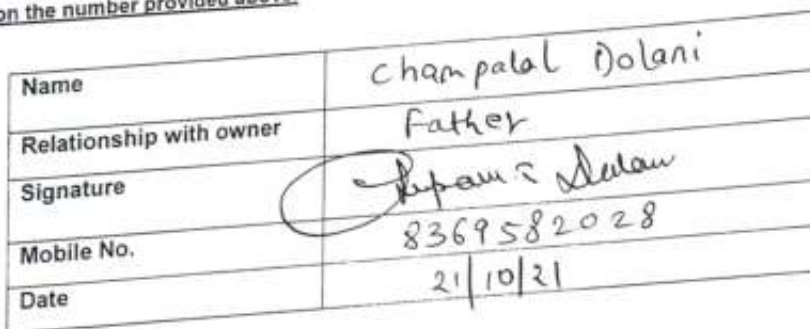 on the number provided above.
Name Champalal Dolani
Relationship with owner Father
Signature
Mobile No. 8369582028
Date 21/10/21